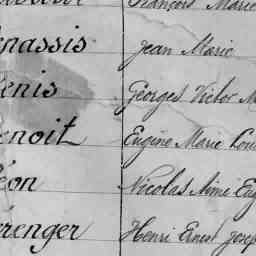 François Marie
enassis Jean Marie
enis Georges Victor M
enoit Eugène Marie Lou
éon Nicolas Aimé Eug
renger Henri Ernest Josep